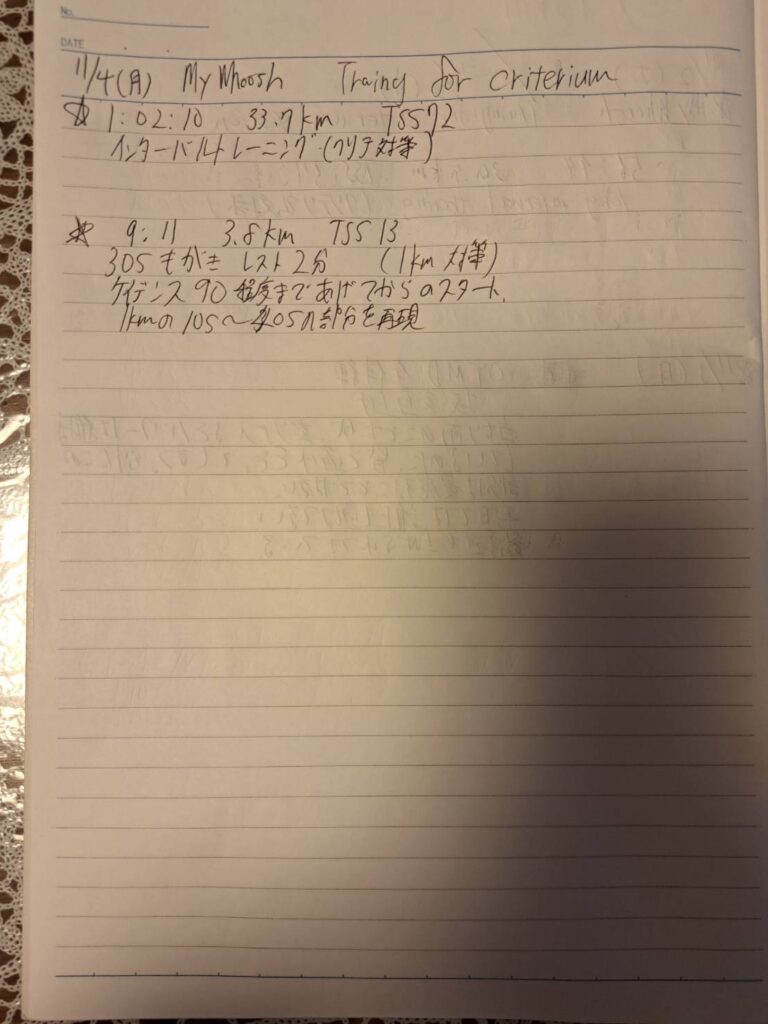 No.
DATE
11/4(月) MyWhoosh Traing for criterium
☆ 1:02:10 33.7km TSS72
インターバルトレーニング(クリテ対策)
☆ 9:11 3.8km TSS 13
30sもがき レスト2分 (1km対策)
ケイデンス90程度まであげてからのスタート.
1kmの10s〜40sの部分を再現